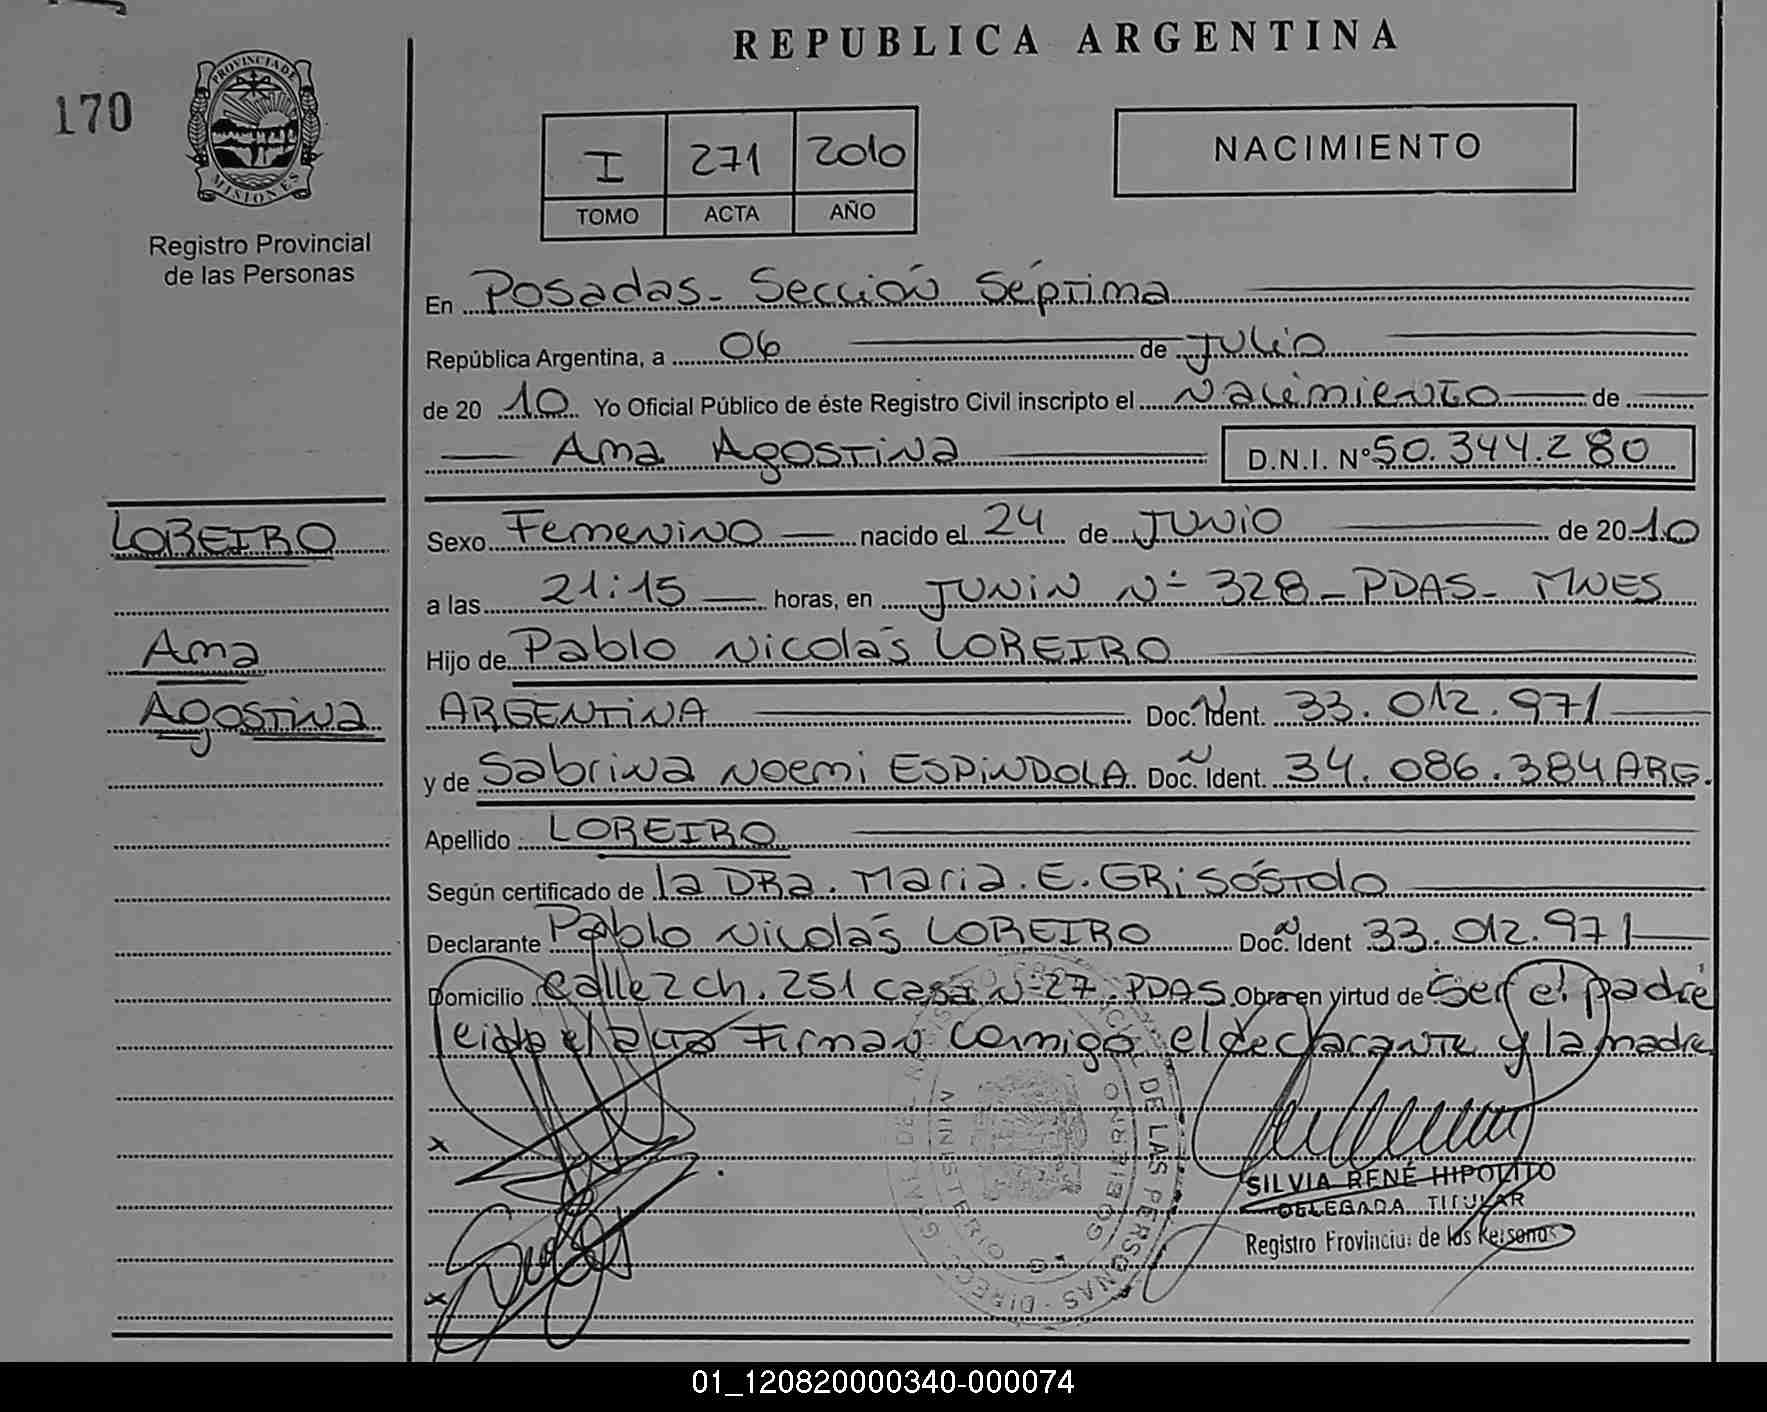 REPUBLICA ARGENTINA
170
PROVINCIA DE
MISIONES
Registro Provincial
de las Personas
I 271 2010
TOMO ACTA AÑO
NACIMIENTO
En Posadas - Sección Séptima
República Argentina, a 06 de Julio
de 20 10 Yo Oficial Público de éste Registro Civil inscripto el Nacimiento de
Ama Agostina D.N.I. Nº 50.344.280
LOREIRO
Ama
Agostina
Sexo Femenino nacido el 24 de Junio de 20 10
a las 21:15 horas, en JUNIN Nº 328 - PDAS - MNES
Hijo de Pablo Nicolás LOREIRO
ARGENTINA Doc. N Ident. 33.012.971
y de Sabrina Noemi ESPINDOLA Doc. N Ident. 34.086.384 ARG.
Apellido LOREIRO
Según certificado de la DRa. Maria. E. GRisóstolo
Declarante Pablo Nicolás LOREIRO Doc. N Ident 33.012.971
Domicilio Calle 2 ch. 251 casa Nº 27 - PDAS. Obra en virtud de Ser el padre
leida el acta Firman conmigo el declarante y la madre
x
x
DE LAS PERSONAS
MINISTERIO
GOBIERNO
SILVIA RENÉ HIPOLITO
DELEGADA TITULAR
Registro Provincial de las Personas
01_120820000340-000074